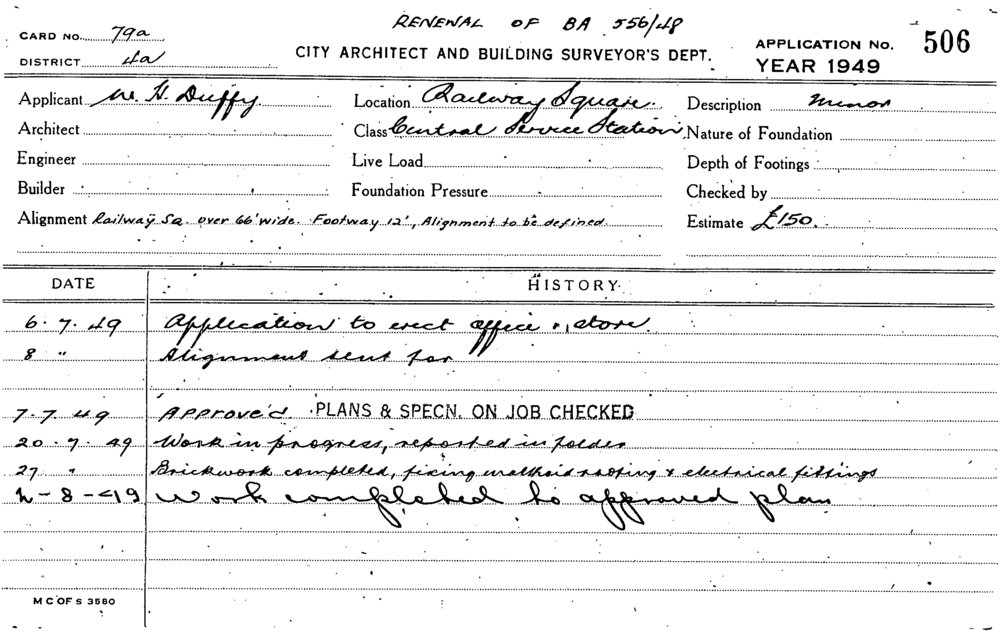 RENEWAL OF BA 556/48
CARD NO. 79a
DISTRICT 4a
CITY ARCHITECT AND BUILDING SURVEYOR'S DEPT.
APPLICATION NO. 506
YEAR 1949
Applicant W. H. Duffy Location Railway Square. Description Minor
Architect Class Central Service Station Nature of Foundation
Engineer Live Load Depth of Footings
Builder Foundation Pressure Checked by
Alignment Railway Sq. over 66' wide. Footway 12', Alignment to be defined. Estimate £150.
DATE HISTORY
6.7.49 Application to erect office & store.
8 " Alignment sent for
7.7.49 Approve'd PLANS & SPECN. ON JOB CHECKED
20.7.49 Work in progress, reported in folder
27 " Brickwork completed, fixing malthoid roofing & electrical fittings
2-8-49 Work completed to approved plan
M C OF S 3580